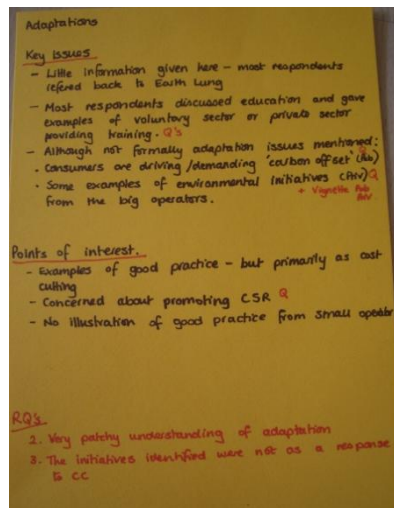 Adaptations
Key issues
- Little information given here - most respondents
refered back to Earth Lung
- Most respondents discussed education and gave
examples of voluntary sector or private sector
providing training. Q's
- Although not formally adaptation issues mentioned:
. Consumers are driving/demanding 'carbon offset' Q
. Some examples of environmental initiatives (Aiv) Q
from the big operators. + Vignette
Points of interest.
- Examples of good practice - but primarily as cost
cutting
- Concerned about promoting CSR Q
- No illustration of good practice from small operator
RQ's
2. Very patchy understanding of adaptation
3. The initiatives identified were not as a response
to CC